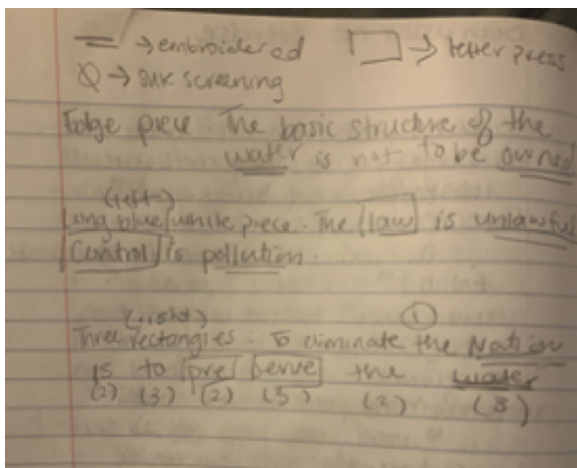 → embroidered → letter press
→ silk screening
Edge piece: The basic structure of the
water is not to be owned
(left)
Long blue/white piece. The law is unlawful
Control is pollution.
(right) 1
Three rectangles: To eliminate the Nation
is to pre serve the water
(2) (3) (2) (3) (2) (3)